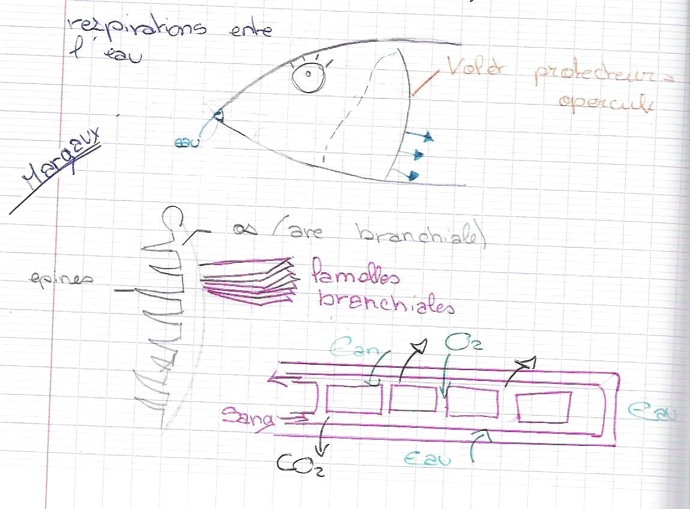 respirations ente
l'eau
Volet protecteur =
opercule
eau
Margaux
os (arc branchiale)
epines
lamelles
branchiales
Eau
O2
Sang
Eau
CO2
Eau